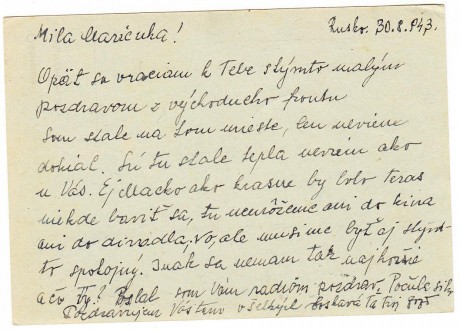 Milá Maričuka!
Rusko. 30.8.943.
Opäť sa vraciam k Tebe s týmto malým
pozdravom z východneho frontu
som stale na tom mieste, len neviem
dokial. Sú tu stale tepla neviem ako
u Vás. Ej Macko ako krasne by bolo teras
niekde baviť sa, tu nemôžeme ani do kina
ani do divadla, no, ale musime byť aj s tým
to spokojný. Inak sa nemam tak najhoršie
a čo Ty? Poslal som Vám radiom pozdrav. Počula si ho
Pozdravujem Vás ta Tvoj